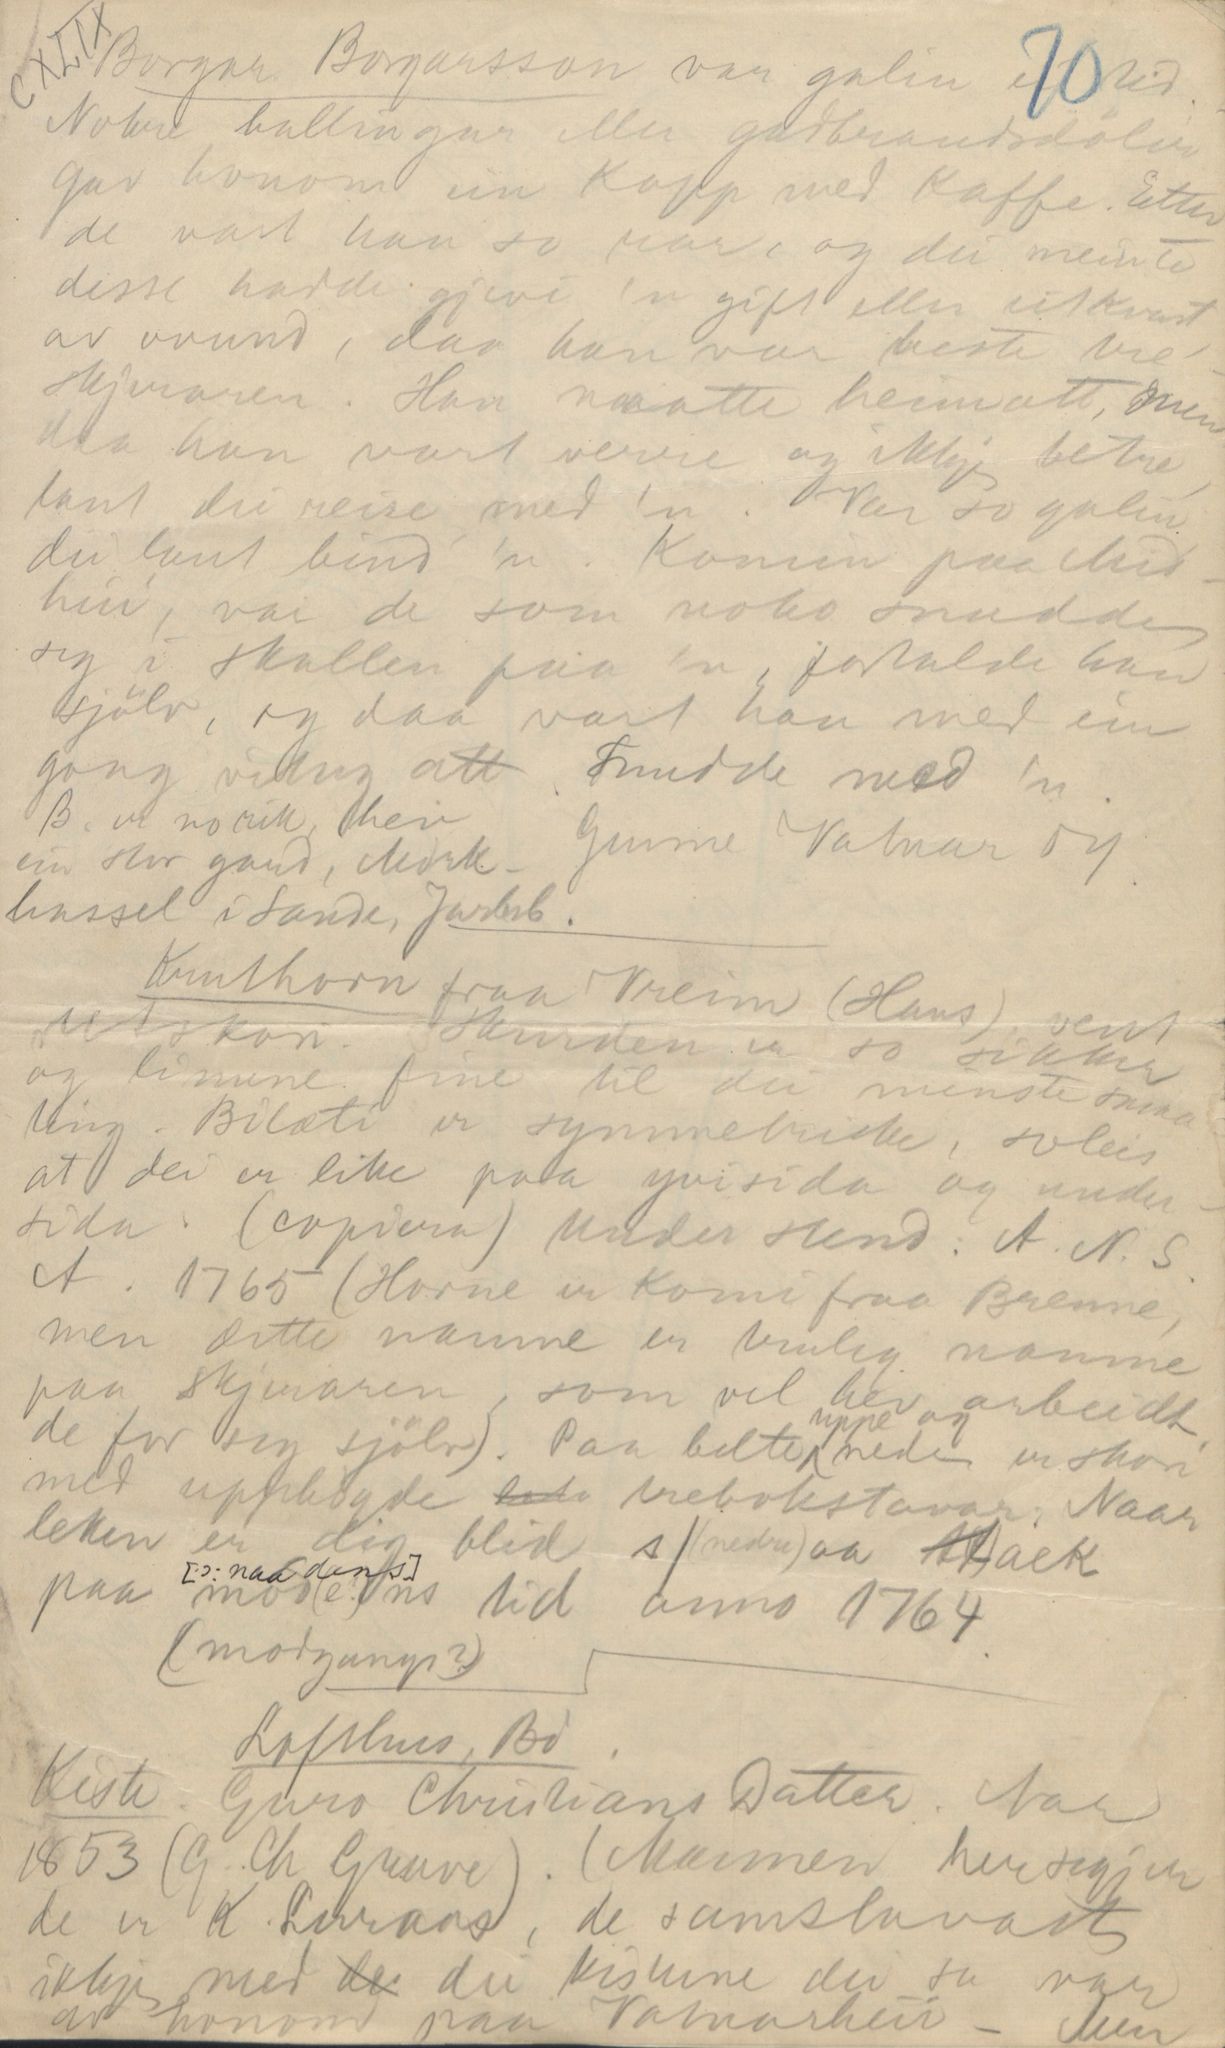 CXLIX
70
Borgar Borgarsson var galin ei tid.
Nokre hallingar eller gudbrandsdölir
gav honom ein Kopp med Kaffe. Etter
de vart han so rar, og dei meinte
desse hadde gjeve 'n gift eller eitkvart
av ovund, daa han var beste tre-
skjeraren. Han maatte heimatt, men
daa han vart verre og ikkje betre,
laut dei reise med 'n. Var so galin
dei laut bind 'n. Komin paa Meid-
hei, var de som noko snudde
seg i skallen paa 'n, fortalde han
sjölv, og daa vart han med ein
gong vitug att. Snudde med 'n.
B. er no rik, hev
ein stor gard, Mörk-
hassel i Sande, Jarlsb.
Gunne Vatnar 84.
Kruthorn fraa Vreim (Hans), vent
utskori. Skurden er so sikker
og linune fine til dei minste smaa
ting. Bilæti er symmetriske, soleis
at dei er like paa yvisida og under-
sida. (copiera) Under stend: A. N. S.
A. 1765 (Horne er Komi fraa Brenne,
men dette namne er truleg namne
paa skjeraren, som vel hev arbeidt
de for seg sjölv). Paa belte uppe og nede er skori
med upphögde trebokstavar: Naar
leken er dig blid s/(nedre) aa tack
paa mod(e?)ns tid anno 1764.
[ɔ: naadens]
(modgangs?)
Lofthus, Bö.
Kiste. Guro Christians Datter. Aar
1853 (G. Ch Grave). (Mannen her segjer
de er K. Luraas, de samsvarast
ikkje med dei kistune dei sa var
av honom paa Vatnarheii – Men